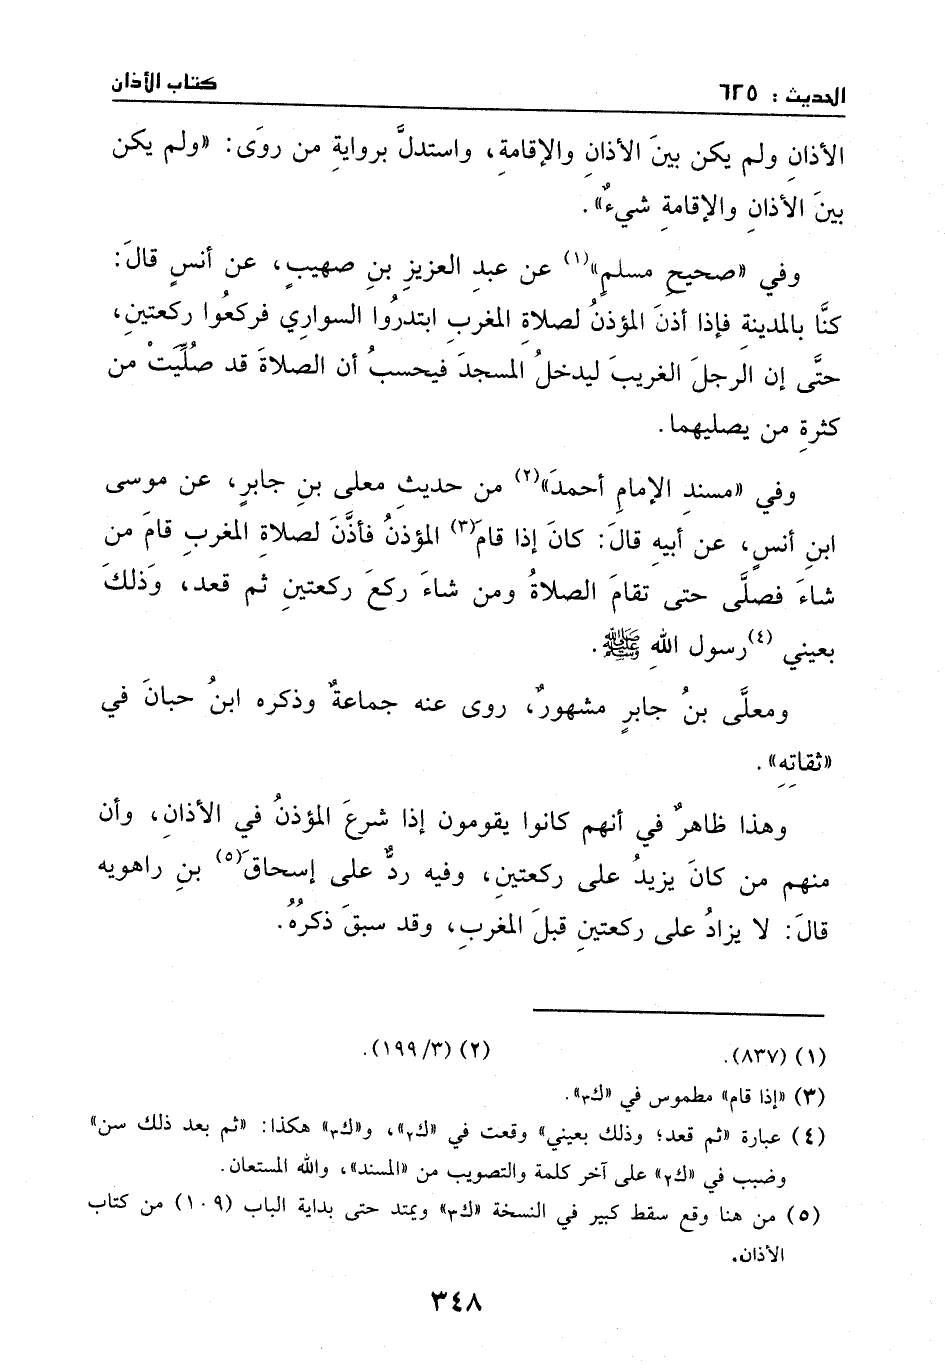 الحديث : ٦٢٥ كتاب الأذان
الأذانِ ولم يكن بينَ الأذانِ والإقامةِ، واستدلَّ بروايةِ من روَى: «ولم يكن
بينَ الأذانِ والإقامةِ شيءٌ».
وفي «صحيحِ مسلمٍ»(١) عن عبدِ العزيزِ بنِ صهيبٍ، عن أنسٍ قالَ:
كنَّا بالمدينةِ فإذا أذنَ المؤذنُ لصلاةِ المغربِ ابتدرُوا السواري فركعُوا ركعتينِ،
حتَّى إن الرجلَ الغريبَ ليدخلُ المسجدَ فيحسبُ أن الصلاةَ قد صلُيَّتْ من
كثرةِ من يصليهما.
وفي «مسندِ الإمامِ أحمدَ»(٢) من حديثِ معلى بنِ جابرٍ، عن موسى
ابنِ أنسٍ، عن أبيهِ قالَ: كانَ إذا قامَ(٣) المؤذنُ فأذَّنَ لصلاةِ المغربِ قامَ من
شاءَ فصلَّى حتى تقامَ الصلاةُ ومن شاءَ ركعَ ركعتينِ ثم قعد، وَذلكَ
بعيني (٤)رسول اللهِ ﷺ.
ومعلَّى بنُ جابرٍ مشهورٌ، روى عنه جماعةٌ وذكره ابنُ حبانَ في
«ثقاتِهِ».
وهذا ظاهرٌ في أنهم كانوا يقومون إذا شرعَ المؤذنُ في الأذانِ، وأن
منهم من كانَ يزيدُ على ركعتينِ، وفيه ردٌّ على إسحاقَ(٥) بنِ راهويه
قالَ: لا يزادُ على ركعتينِ قبلَ المغربِ، وقد سبقَ ذكرُهُ.
(١) (٨٣٧). (٢) (٣/ ١٩٩).
(٣) «إذا قام» مطموس في «ك٣».
(٤) عبارة «ثم قعد؛ وذلك بعيني» وقعت في «ك٢»، و«ك٣» هكذا: «ثم بعد ذلك سن»
وضبب في «ك٢» على آخر كلمة والتصويب من «المسند»، والله المستعان.
(٥) من هنا وقع سقط كبير في النسخة «ك٣» ويمتد حتى بداية الباب (١٠٩) من كتاب
الأذان.
٣٤٨